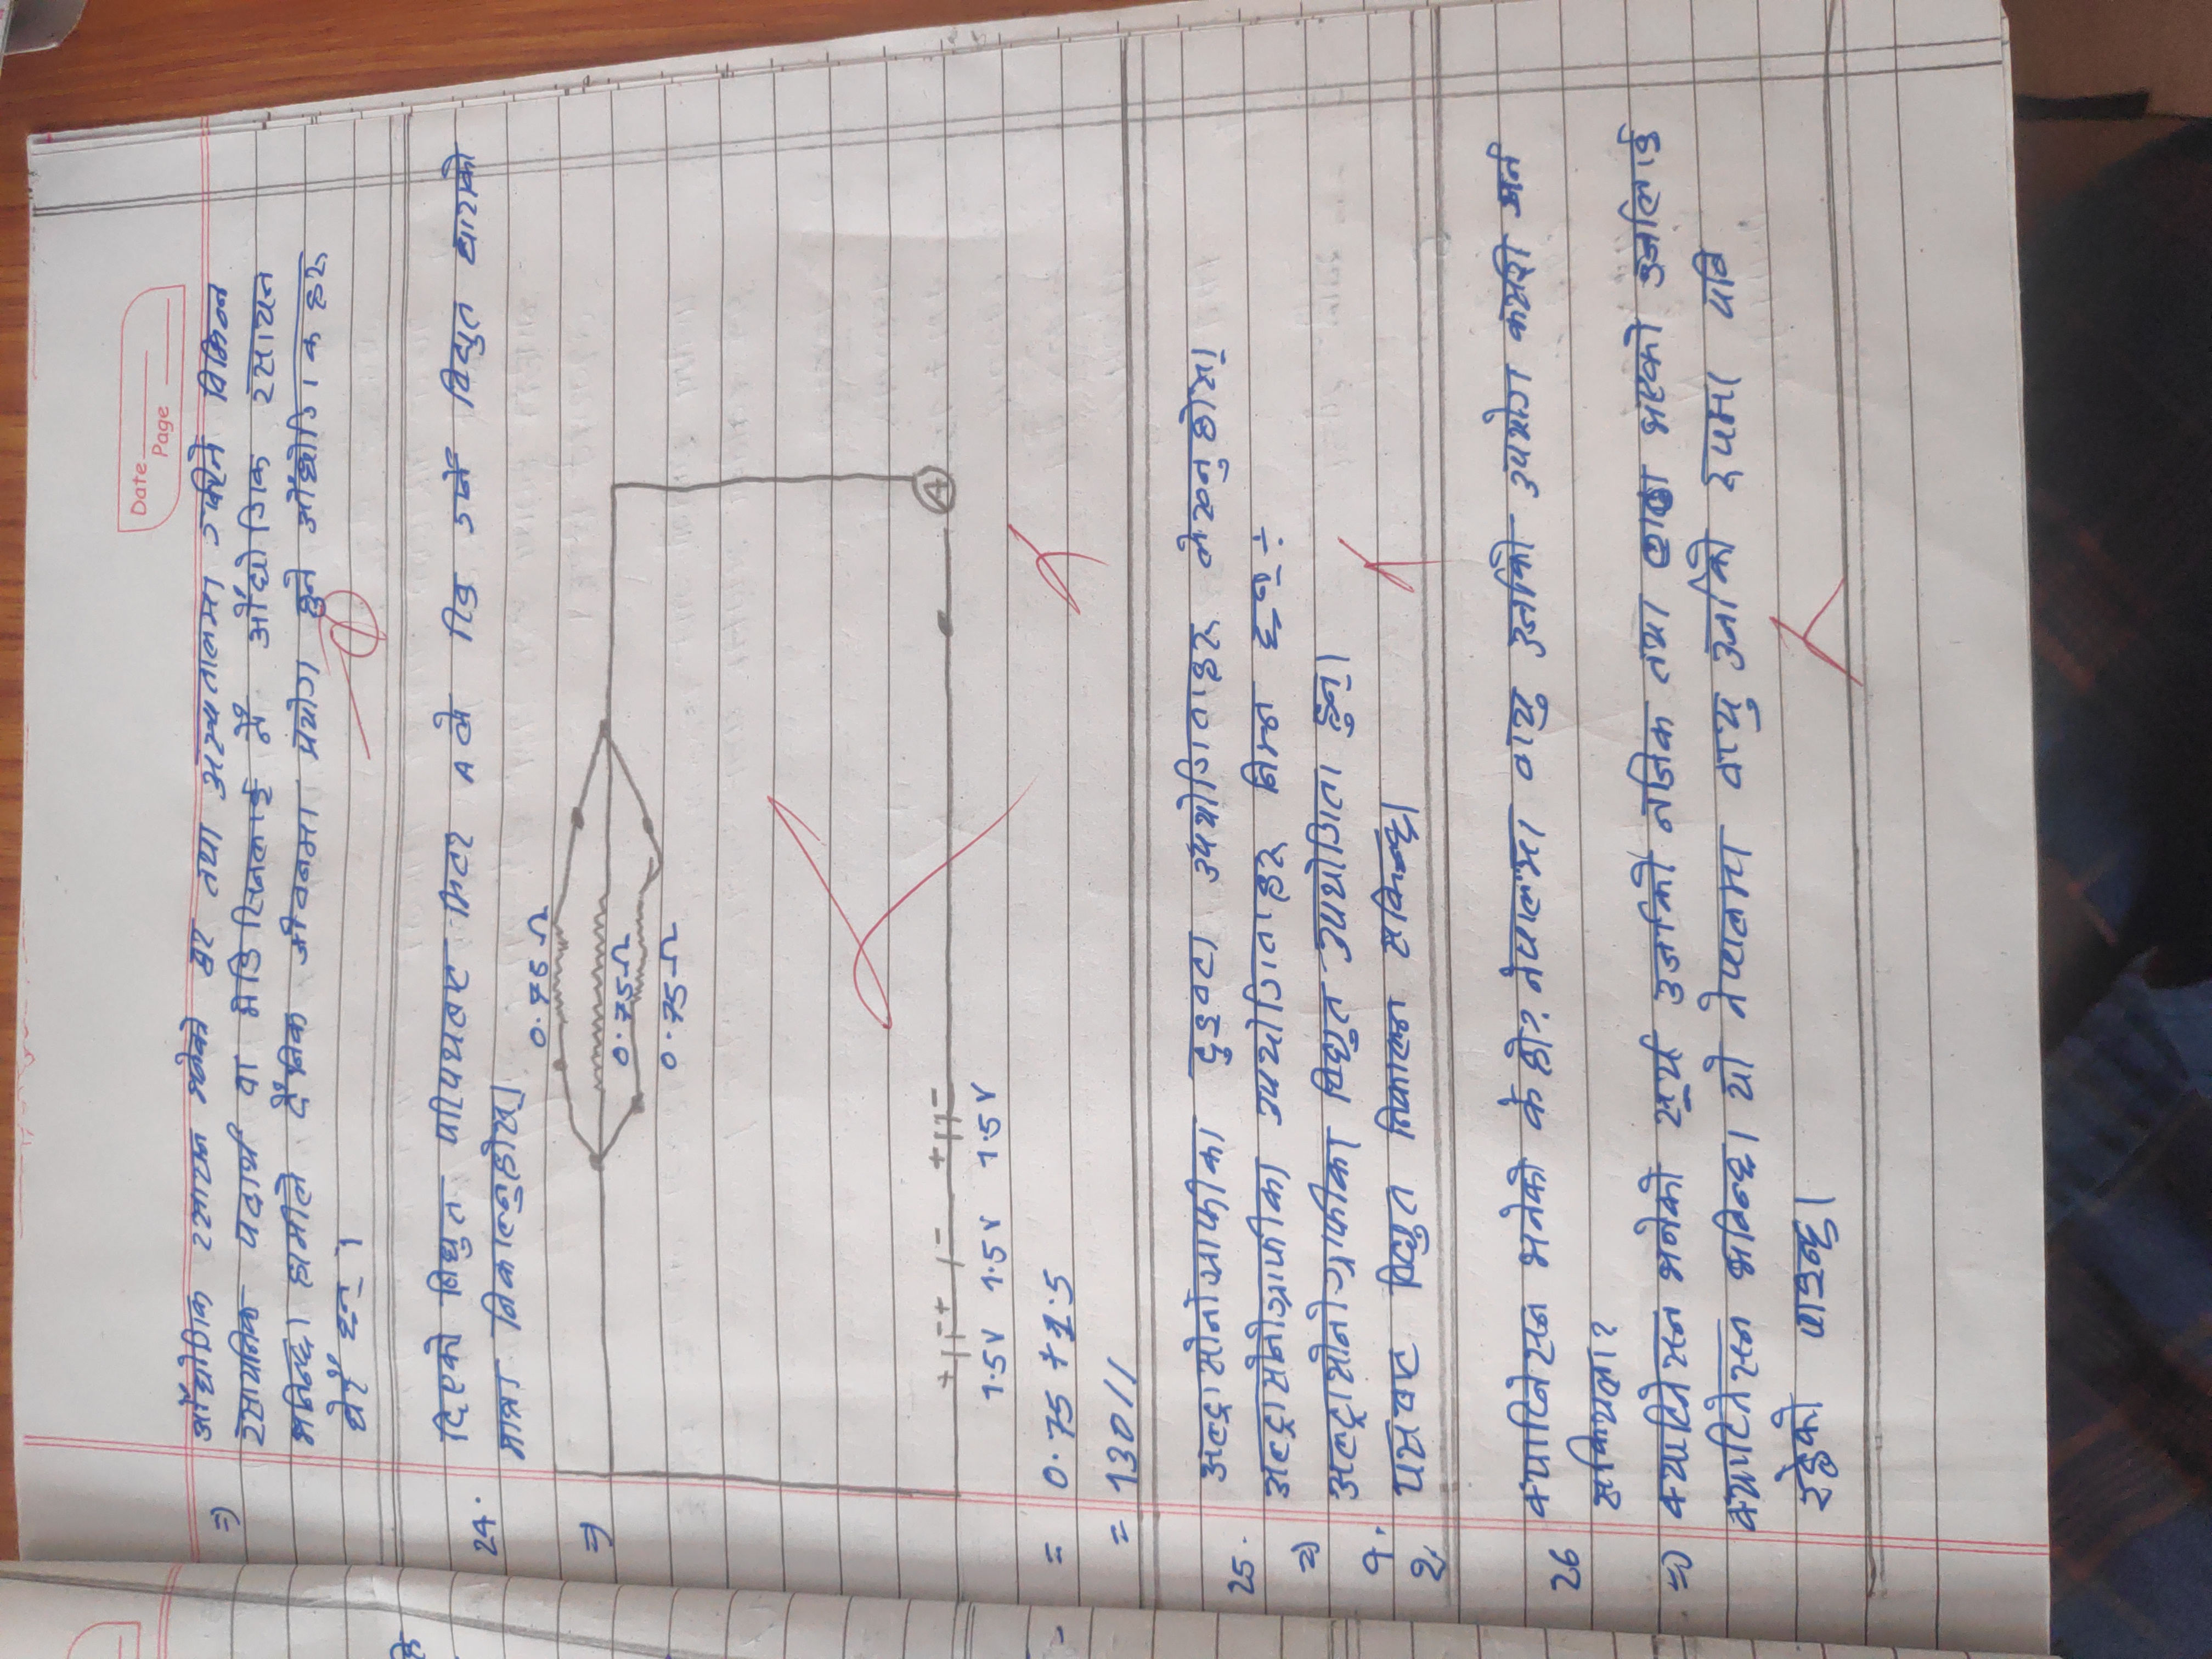 Date
Page
=) औद्योगिक रसायन भनेको घर तथा अस्पतालमा गरिने विभिन्न
रसायनिक पदार्थ वा मेडिसिनलाई नै औद्योगिक रसायन
भनिन्छ। हामीले दैनिक जीवनमा प्रयोग हुने औद्योगिकहरु
धेरै छन् ।
24. दिएको विधुत परिपथबाट मिटर A ले रिड गर्ने विद्युत धाराको
मात्रा निकाल्नुहोस्।
=) 0.75 Ω
0.75Ω
0.75Ω
A
+ - + - + -
1.5V 1.5V 1.5V
= 0.75 + 1.5
= 130//
25. अल्ट्रासोनोग्राफीका दुइवटा उपयोगिताहरु लेख्नुहोस्।
=) अल्ट्रासोनोग्राफीका उपयोगिताहरु निम्न छन् ÷
१. अल्ट्रासोनोग्राफीका विद्युत उपयोगिता हुन्।
२. यसबाट विद्युत निकाल्न सकिन्छ।
26 क्याटिनेसन भनेको के हो? नेपालमा वायु उर्जाको उपयोग कसरी गर्न
सकिएला?
=) क्याटिनेसन भनेको सूर्य उर्जाको नजिक तथा भएको उर्जालाई
क्याटिनेसन भनिन्छ। यो नेपालमा वायु उर्जाको रुपमा पनि
रहेको पाइन्छ।